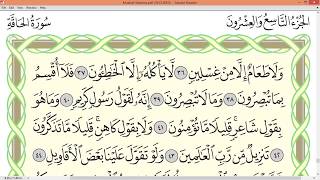 الجزء التاسع والعشرون
سورة الحاقة
وَلَا طَعَامٌ إِلَّا مِنْ غِسْلِينٍ ٣٦ لَا يَأْكُلُهُ إِلَّا الْخَاطِئُونَ ٣٧ فَلَا أُقْسِمُ
بِمَا تُبْصِرُونَ ٣٨ وَمَا لَا تُبْصِرُونَ ٣٩ إِنَّهُ لَقَوْلُ رَسُولٍ كَرِيمٍ ٤٠ وَمَا هُوَ
بِقَوْلِ شَاعِرٍ قَلِيلًا مَا تُؤْمِنُونَ ٤١ وَلَا بِقَوْلِ كَاهِنٍ قَلِيلًا مَا تَذَكَّرُونَ
٤٢ تَنْزِيلٌ مِنْ رَبِّ الْعَالَمِينَ ٤٣ وَلَوْ تَقَوَّلَ عَلَيْنَا بَعْضَ الْأَقَاوِيلِ ٤٤